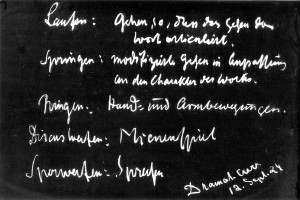 Laufen: Gehen, so, dass das Gehen das
Wort artikuliert.
Springen: modifiziertes Gehen in Anpassung
an den Charakter des Worts.
Ringen: Hand- und Armbewegungen.
Discuswerfen: Mienenspiel
Speerwerfen: Sprechen
Dramat. Curs
12. Sept. 24